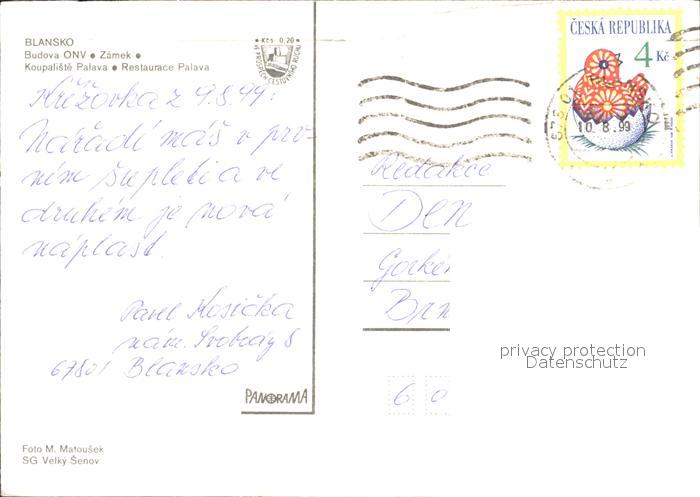 BLANSKO
Budova ONV ● Zámek ●
Koupaliště Palava ● Restaurace Palava
Kčs 0,20
VE PROSPĚCH CESTOVNÍHO RUCHU
Křížovka z 9.8.99:
Nářadí máš v prv-
ním šupleti a ve
druhém je nová
náplast.
Pavel Kosička
nám. Svobody 8
67801 Blansko
PANORAMA
Foto M. Matoušek
SG Velký Šenov
ČESKÁ REPUBLIKA
4 Kč
678 01
10.8.99
Redakce
DEN
Gorké
Brn
6 0
privacy protection
Datenschutz